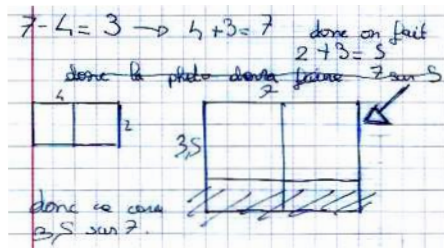 7-4= 3 → 4+3=7 donc on fait
2+3=5
donc la photo devra faire 7 sur 5
4
7
2
3,5
donc ce sera
3,5 sur 7.